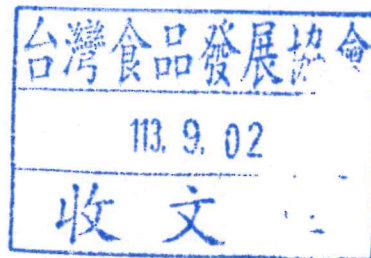 台灣食品發展協會
113. 9. 02
收文